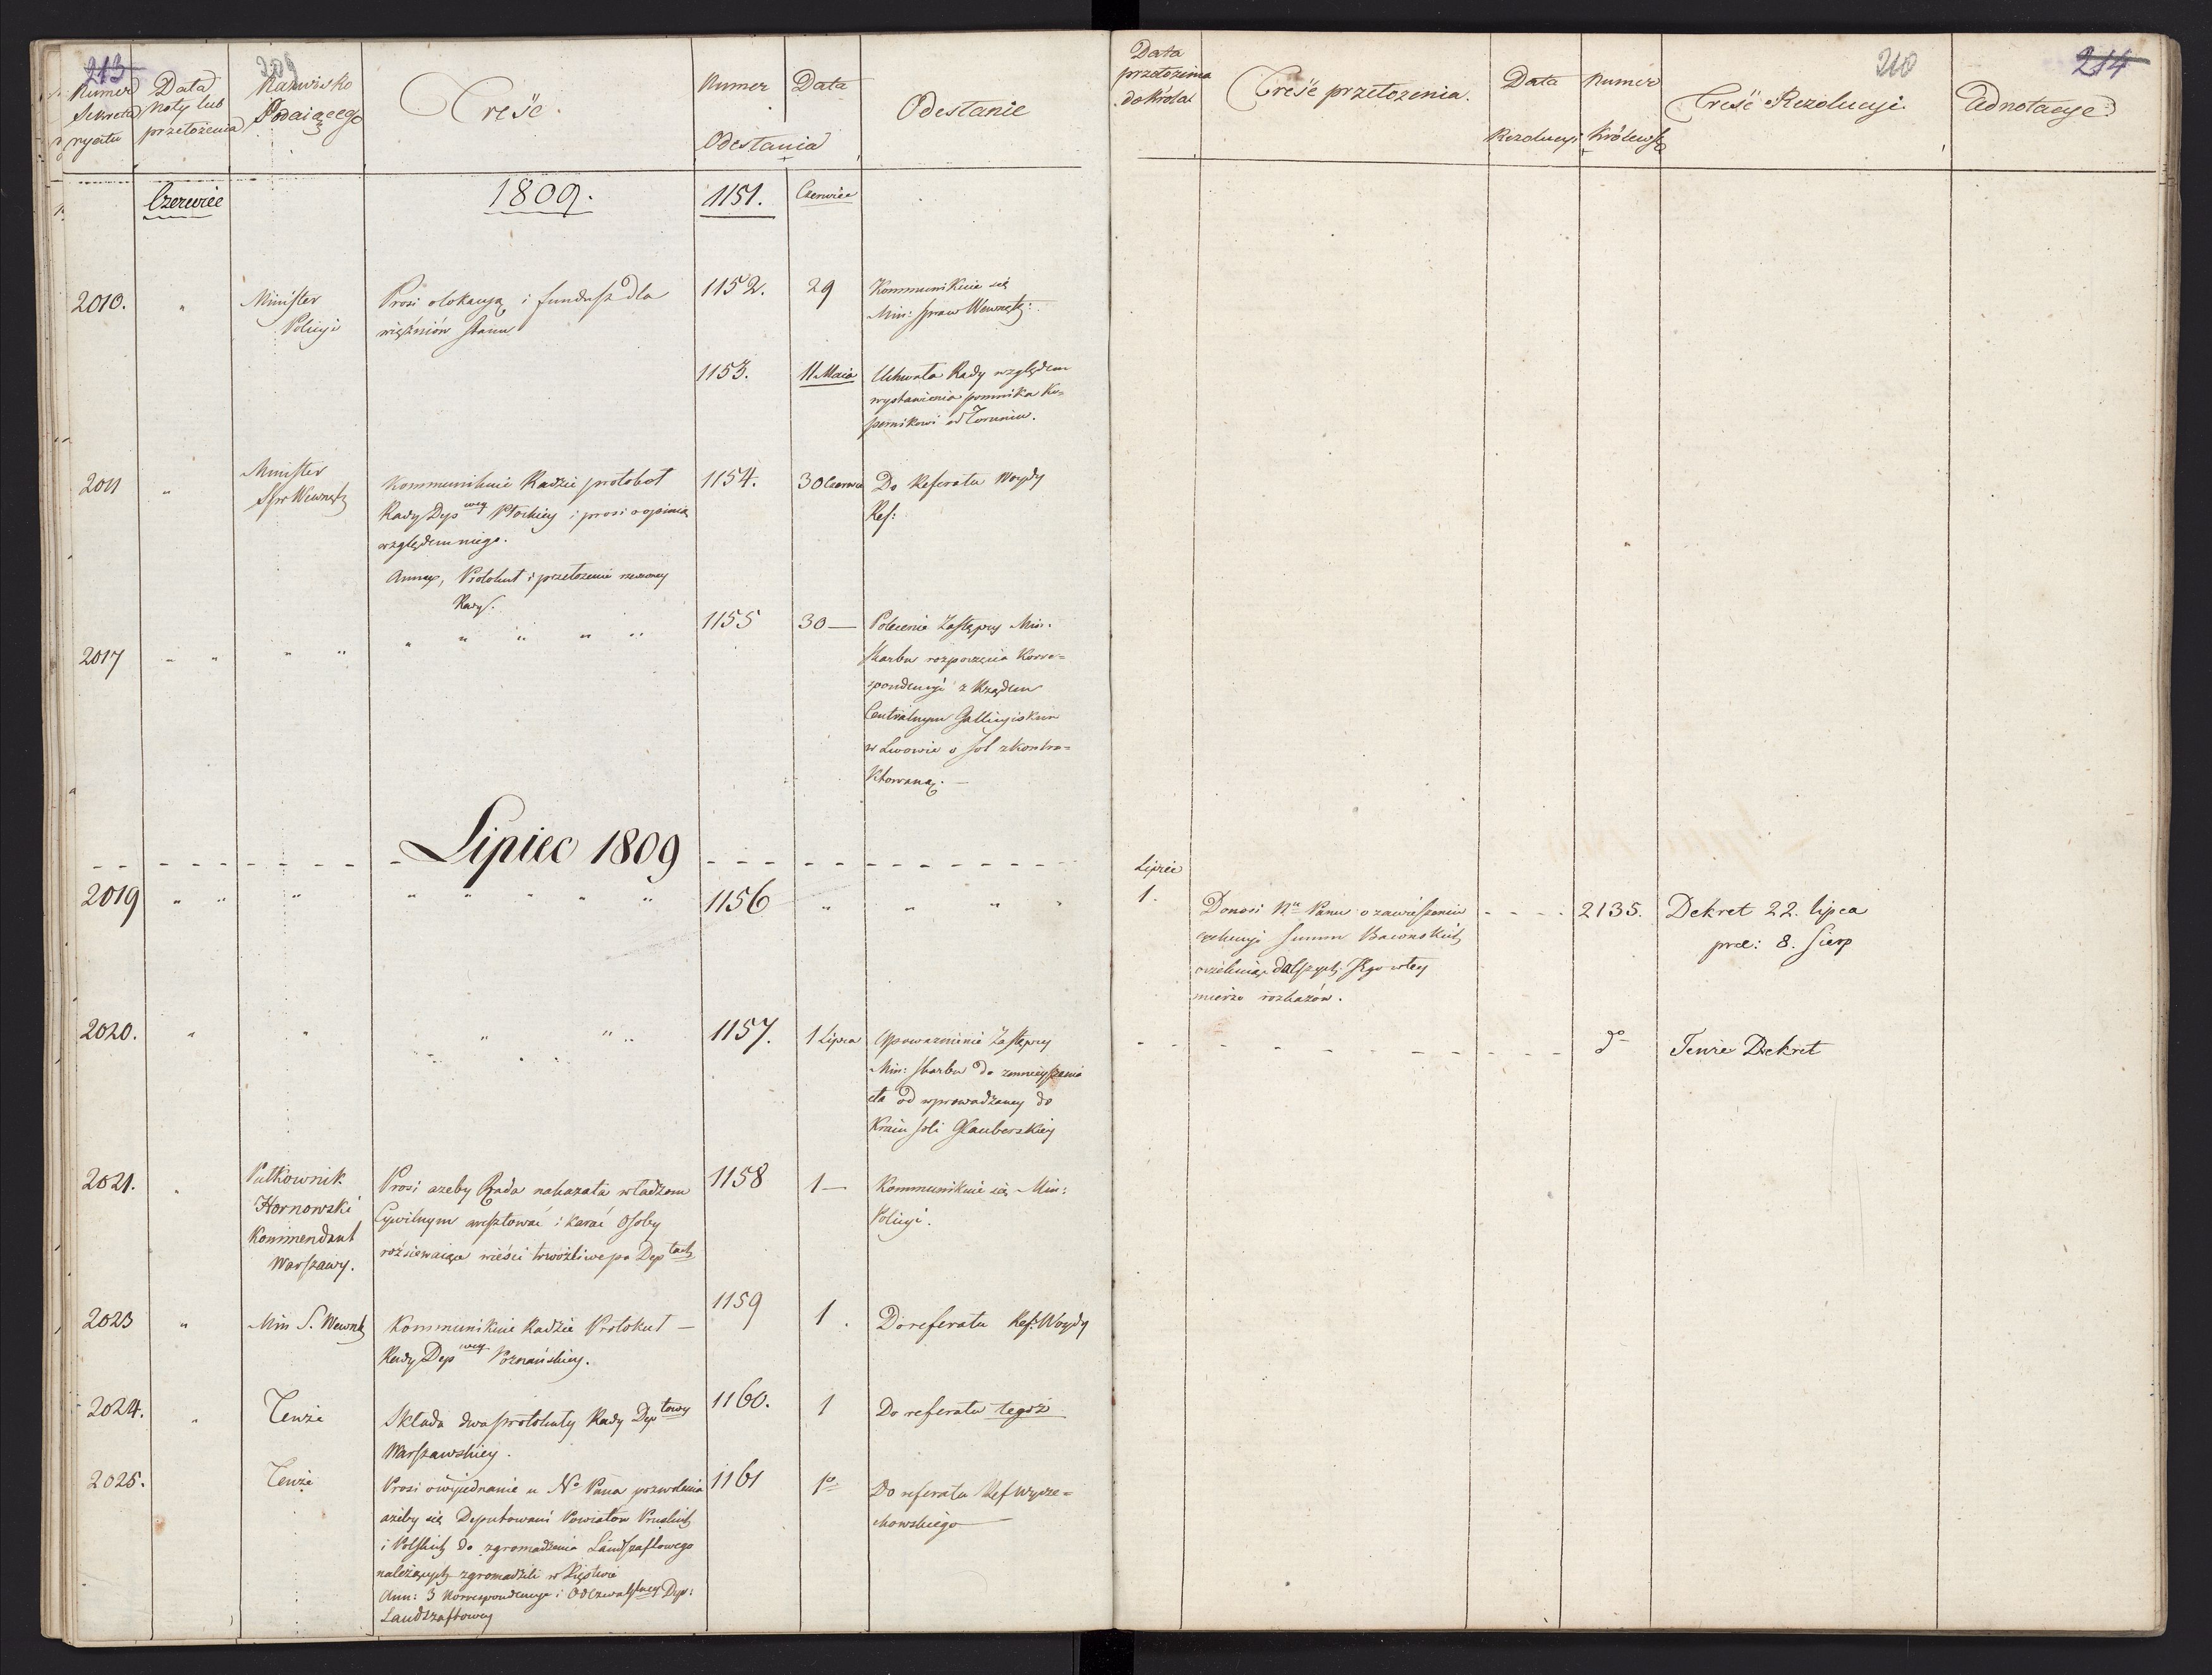 213
209
Numer
Sekreta
ryatu
Data
Noty lub
przełożenia
Nazwisko
Podaiącego
Treść.
Numer
Data
Odesłania
Odesłanie
Czerwiec
1809.
1151.
Czerwiec
2010.
"
Minister
Policyi
Prosi o lokacyą i fundusz dla
więźniów stanu
1152.
29
Kommunikuie się
Min: Spraw Wewnętz:
1153.
11 Maia
Uchwała Rady względem
wystawienia pomnika Ko=
pernikowi w Toruniu.
2011
"
Minister
Spr Wewnętz
Kommunikuie Radzie protokół
Rady Dep wey Płockiey i prosi o opinią
względem niego.
Annex, Protokuł i przełożenie rzeczoney
Rady.
1154.
30 Czerwca
Do Referatu Woydy
Ref:
2017
" " " " " " " " "
1155
30 —
Polecenie Zastępcy Min:
Skarbu rozpoczęcia Korre=
spondencyi z Rządem
Centralnym Galicyiskim
w Lwowie o sól zkontra=
ktowaną. —
Lipiec 1809
2019
" " " " " " " " "
1156
" " " "
2020.
" " " " "
1157.
1 Lipca
Upoważnienie Zastępcy
Min: Skarbu do zmnieyszenia
cła od wprowadzaney do
Kraiu soli Glauberskiey
2021.
"
Pułkownik
Hornowski
Kommendant
Warszawy.
Prosi azeby Rada nakazała władzom
Cywilnym aresztować i karać osoby
rozsiewaiące wieści trwożliwe po Dep tach
1158
1 —
Kommunikuie się Min:
Policyi.
2023
"
Min S. Wewnętz
Kommunikuie Radzie Protokuł —
Rady Dep wey Poznańskiey.
1159
1.
Do referatu Ref: Woydy
2024.
"
Tenże
Składa dwa protokuły Rady Dep towey
Warszawskiey.
1160.
1
Do referatu tegoż
2025.
Tenże
Prosi o wyiednanie u No Pana pozwolenia
ażeby się Deputowani Powiatów Pruskich
i Polskich do zgromadzenia Landszaftowego
należących zgromadzili w Xięstwie
Ann: 3 Korrespondencye i Odezwa Dep:
Landszaftowey
1161
1o
Do referatu Ref Wycze=
chowskiego
Data
przełożenia
do Króla
Treść przełożenia.
Data
Rezolucyi
Numer
Królewsk
Treść Rezolucyi
210
214
Adnotacye:
Lipiec
1.
Donosi Nu Panu o zawieszeniu
exekucyi summ Baionskich
oczekuiąc dalszych Jego w tey
mierze rozkazów.
- - - -
2135.
Dekret 22. lipca
prae: 8. Sierp
- - - - - - - - - -
do
Tenże Dekret